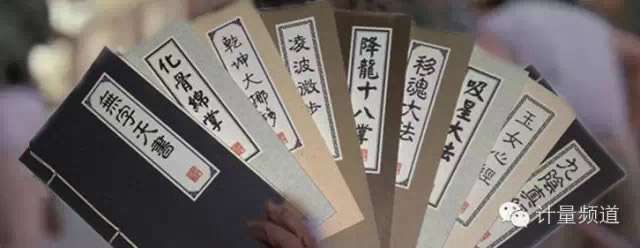 無字天書
化骨綿掌
乾坤大挪移
凌波微步
降龍十八掌
移魂大法
吸星大法
玉女心經
九陰真
计量频道